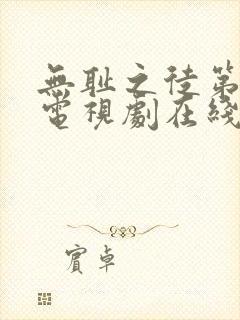 無耻之徒第
電視劇在綫
賓卓